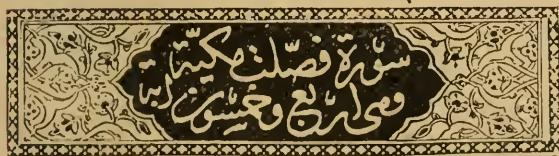 سورة فصلت مكية
وهي اربع وخمسون اية